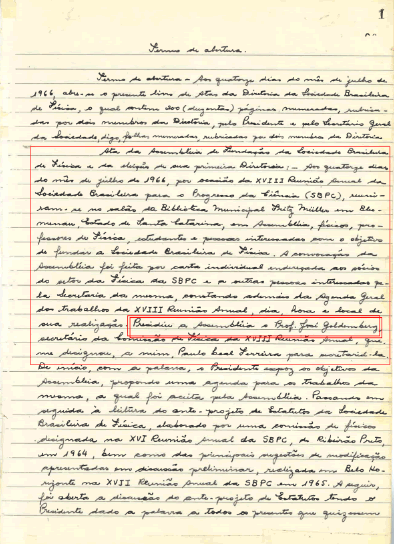 1
Termo de abertura.
Termo de abertura - Aos quatorze dias do mês de julho de
1966, abre-se o presente livro de Atas da Diretoria da Sociedade Brasileira
de Física, o qual contem 200 (duzentas) páginas numeradas, rubrica-
das por dois membros da Diretoria, pelo Presidente e pelo Secretário Geral
da Sociedade digo, folhas numeradas rubricadas por dois membros da Diretoria
Ata da Assembleia de Fundação da Sociedade Brasileira
de Física e da eleição de sua primeira Diretoria: - Aos quatorze dias
do mês de julho de 1966, por ocasião da XVIII Reunião Anual da
Sociedade Brasileira para o Progresso da Ciência (SBPC), reuni-
ram-se no salão da Biblioteca Municipal Fritz Müller em Blu-
menau, Estado de Santa Catarina, em Assembléia, físicos, pro-
fessores de Física, estudantes e pessoas interessadas com o objetivo
de fundar a Sociedade Brasileira de Física. A convocação da
Assembléia foi feita por carta individual endereçada aos sócios
do setor da Física da SBPC e a outras pessoas interessadas pe-
la Secretaria da mesma, constando ademais da Agenda Geral
dos trabalhos da XVIII Reunião Anual, dia, hora e local de
sua realização. Presidiu a Assembléia o Prof. José Goldemberg
secretário da Comissão de Física da XVIII Reunião Anual, que
me designou, a mim, Paulo Leal Ferreira para secretariá-la.
De início, com a palavra, o Presidente expoz os objetivos da
Assembléia, propondo uma agenda para os trabalhos da
mesma, a qual foi aceita pela Assembléia. Passando em
seguida à leitura do ante-projeto de Estatutos da Sociedade
Brasileira de Física, elaborado por uma comissão de físicos
designada na XVI Reunião Anual da SBPC, de Ribeirão Preto,
em 1964, bem como das principais sugestões de modificação
apresentadas em discussão preliminar, realizada em Belo Ho-
rizonte na XVII Reunião Anual da SBPC em 1965. A seguir,
foi aberta a discussão do ante-projeto de Estatutos tendo o
Presidente dado a palavra a todos os presentes que quizessem